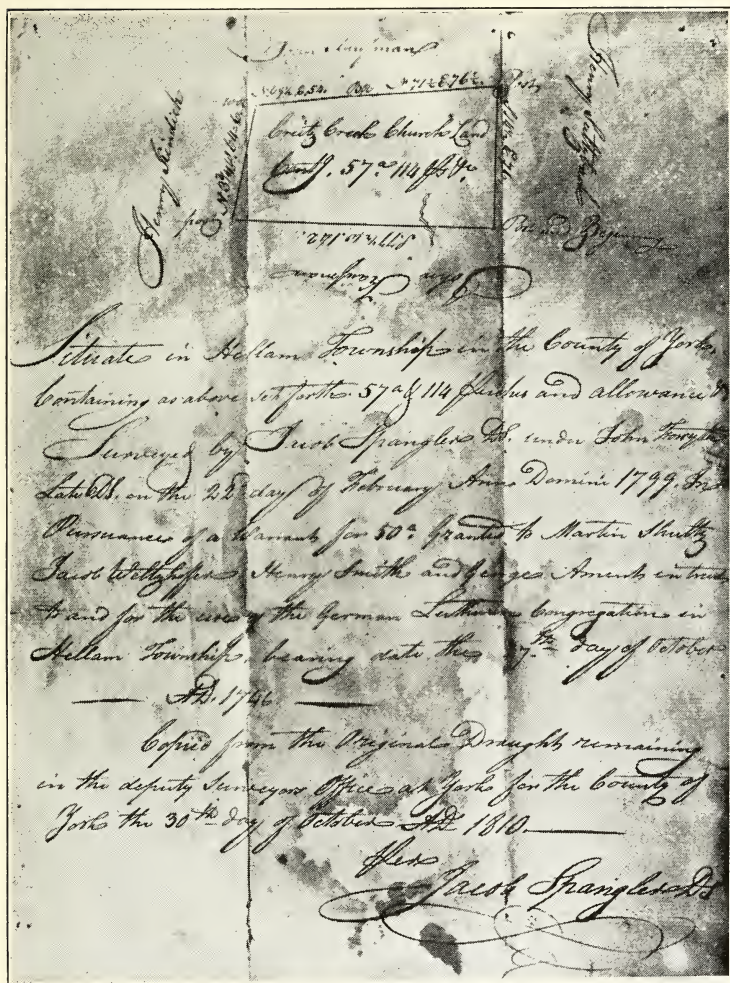 Kaufman
Henry Kindich
Henry
Creitz Creek Church Land
57a 114
post
S. 77½ W. 142.
John Kaufman
Situate in Hellam Township in the County of York,
Containing as above set forth 57a & 114 Perches and allowance &
Surveyed by Jacob Spangler DS. under John Forsyth
Late DS. on the 22d day of February Anno Domini 1799. In
Pursuance of a Warrant for 50a Granted to Martin Shultz
Jacob Henry Smith and George Aments in trust
to and for the use of the German Lutheran Congregation in
Hellam Township, bearing date the day of October
AD. 1746
Copied from the Original Draught remaining
in the deputy Surveyors Office at York for the County of
York the 30th day of October AD 1810.
Per
Jacob Spangler DS